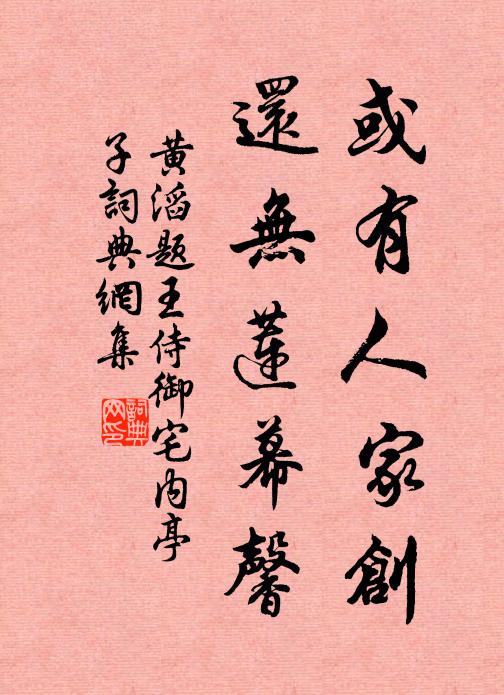 或有人家創
還無蓮幕馨
黄滔题王侍御宅内亭
子詞典網集
詞典网印